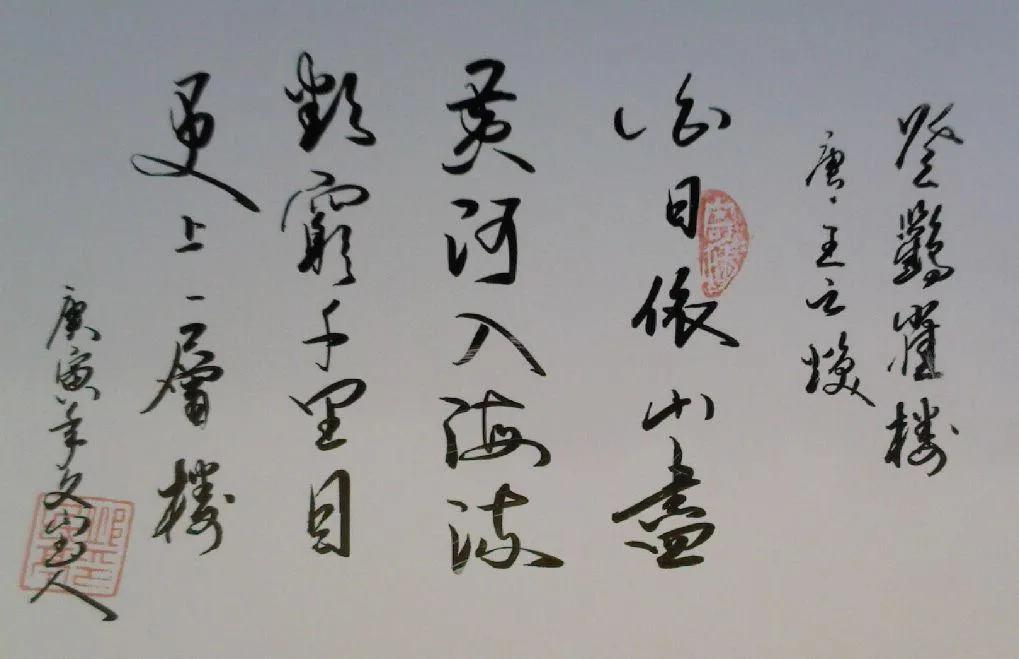 登鸛雀楼
唐·王之焕
白日依山盡
黄河入海流
欲窮千里目
更上一層樓
庚寅年文山人